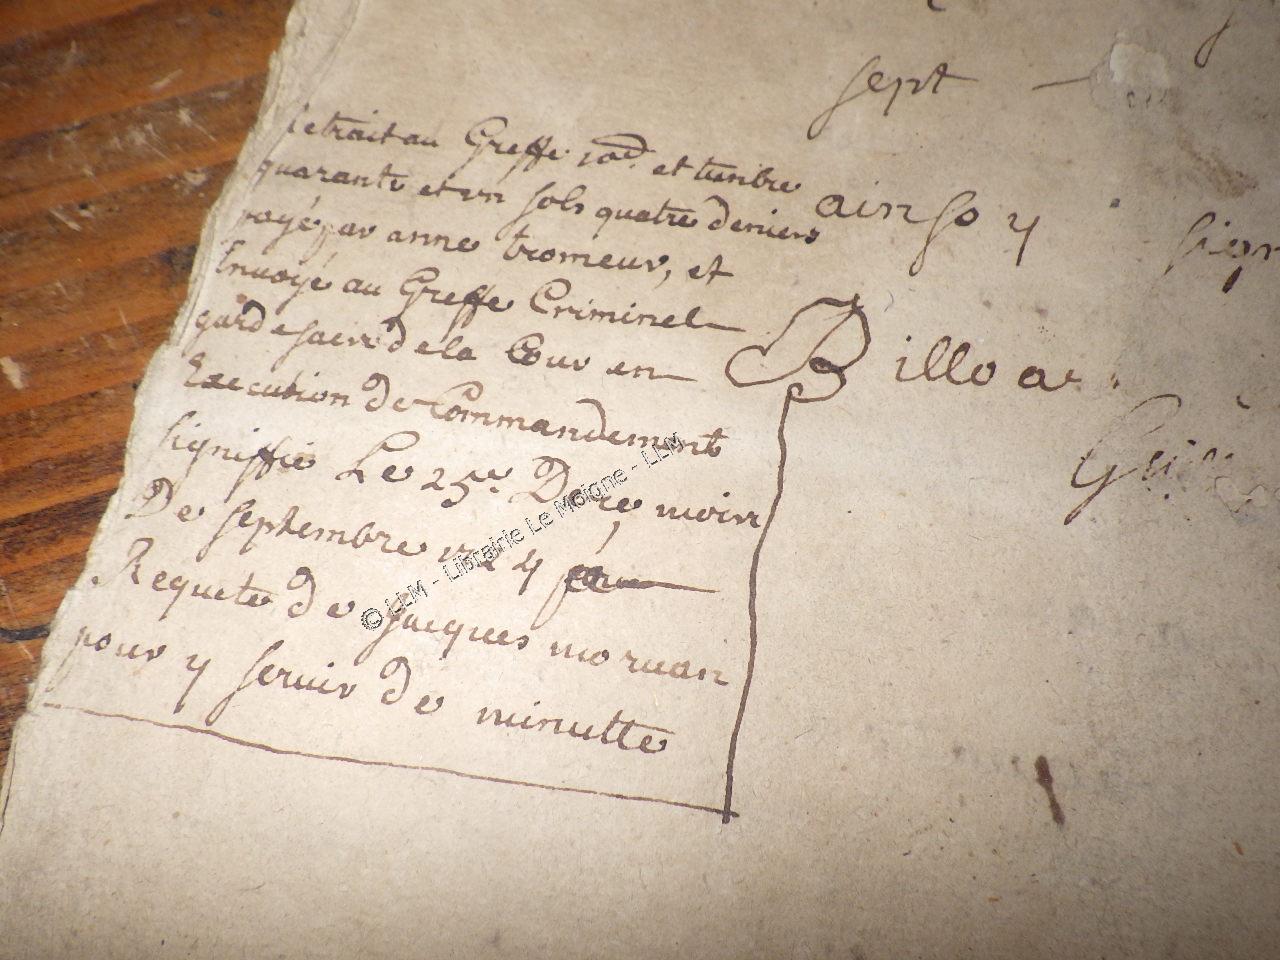 sept
Retrait au Greffe et timbre
quarante et un sols quatre deniers
payé par anne tromeur, et
Envoyé au Greffe Criminel
garde sacqs de la Cour en
Execution de Commandement
signiffié Le 25e. De ce moin
De septembre 1724
Requete de jacques moruan
pour y servir de minutte
ainsy sign
Billoar
© LLM - Librairie Le Moigne - LLM